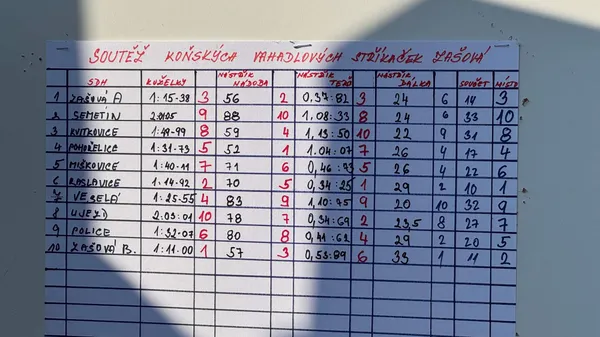 SOUTĚŽ KOŇSKÝCH VAHADLOVÝCH STŘÍKAČEK ZAŠOVÁ
SDH KUŽELKY NÁSTŘIK NÁDOBA NÁSTŘIK TERČ NÁSTŘIK DÁLKA SOUČET MÍSTO
1 ZAŠOVÁ A 1:15-38 3 56 2 0,37:82 3 24 6 14 3
2 SEMETÍN 9 88 10 1,08:33 8 24 6 33 10
3 KVITKOVICE 8 59 4 1,13:50 10 22 9 31 8
4 POHOŘELICE 1:31-73 5 52 1 1.04:07 7 26 4 17 4
5 MIŠKOVICE 1:40-11 7 71 6 0,46:93 5 26 4 22 6
6 RASLAVICE 1:14-92 2 70 5 0,34:25 1 29 2 10 1
7 VESELÁ 1:25-55 4 83 9 1,10:95 9 20 10 32 9
8 ÚJEZD 2:03-01 10 78 7 0,34:69 2 23,5 8 27 7
9 POLICE 1:32-07 6 80 8 0,41:62 4 29 2 20 5
10 ZAŠOVÁ B. 1:11-00 1 57 3 0,53:89 6 33 1 11 2